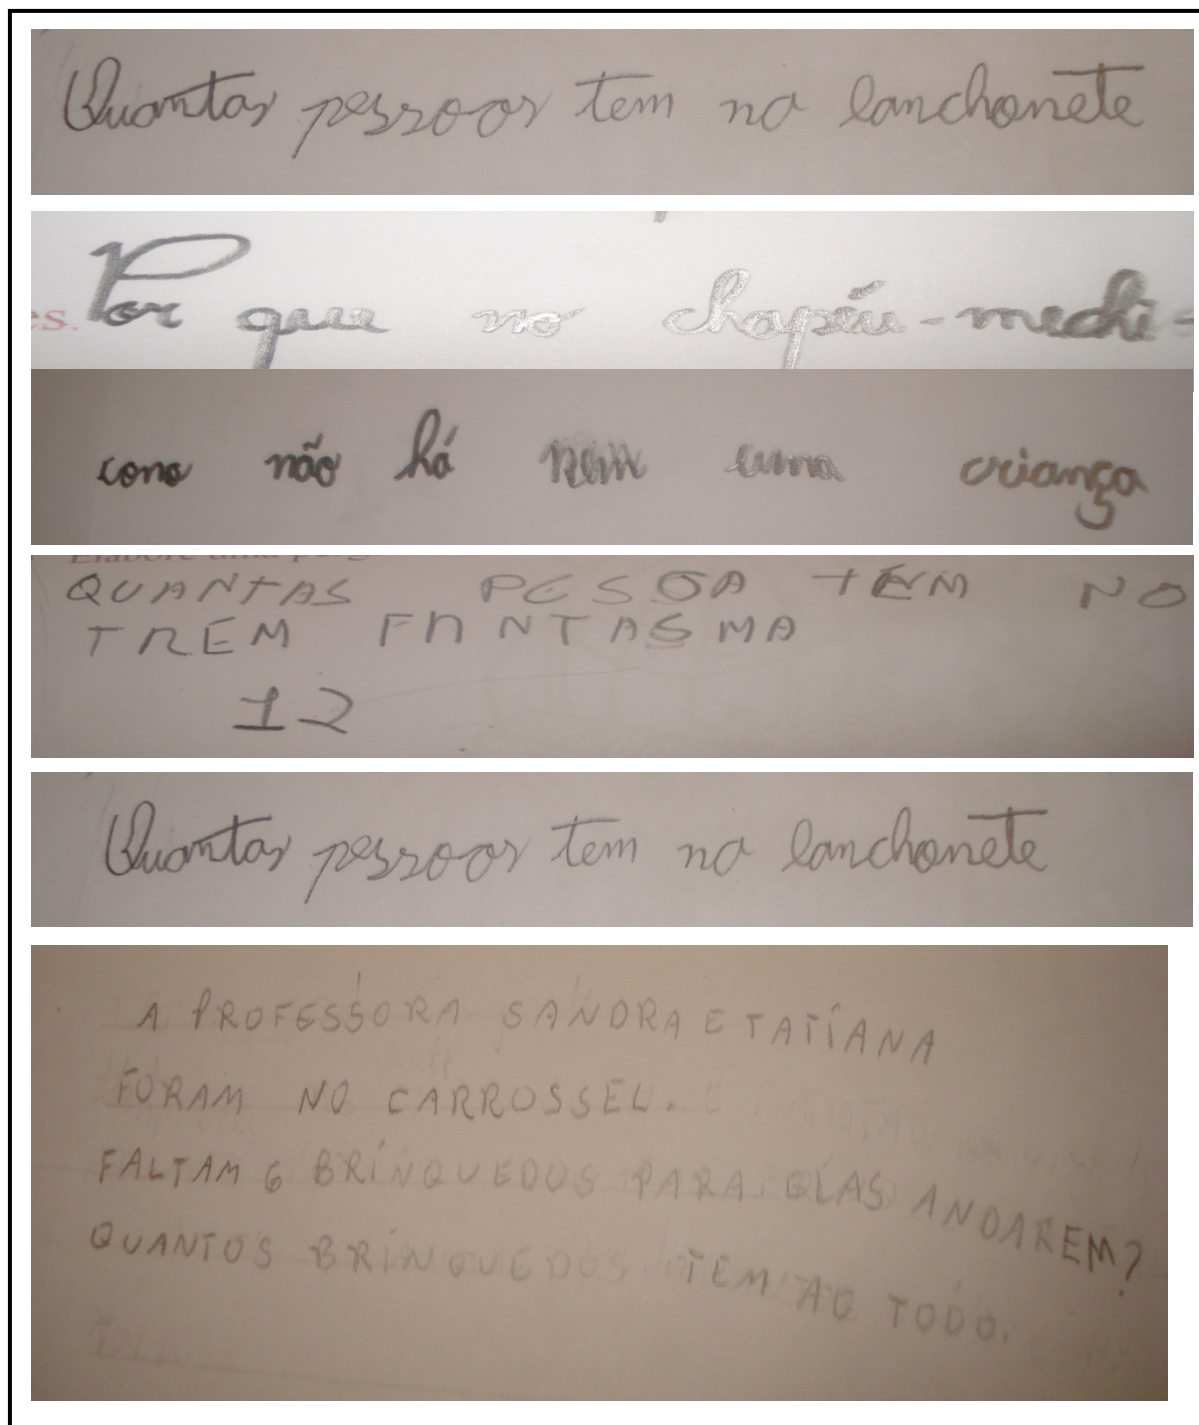 Quantas pessoas tem na lanchonete
es. Por que no chapéu-mechi-
cano não há nem uma criança
Elabore uma perg
QUANTAS PESSOA TEM NO
TREM FANTASMA
12
Quantas pessoas tem na lanchonete
A PROFESSORA SANDRA E TATIANA
FORAM NO CARROSSEL.
FALTAM 6 BRINQUEDOS PARA ELAS ANDAREM?
QUANTOS BRINQUEDOS TEM AO TODO.